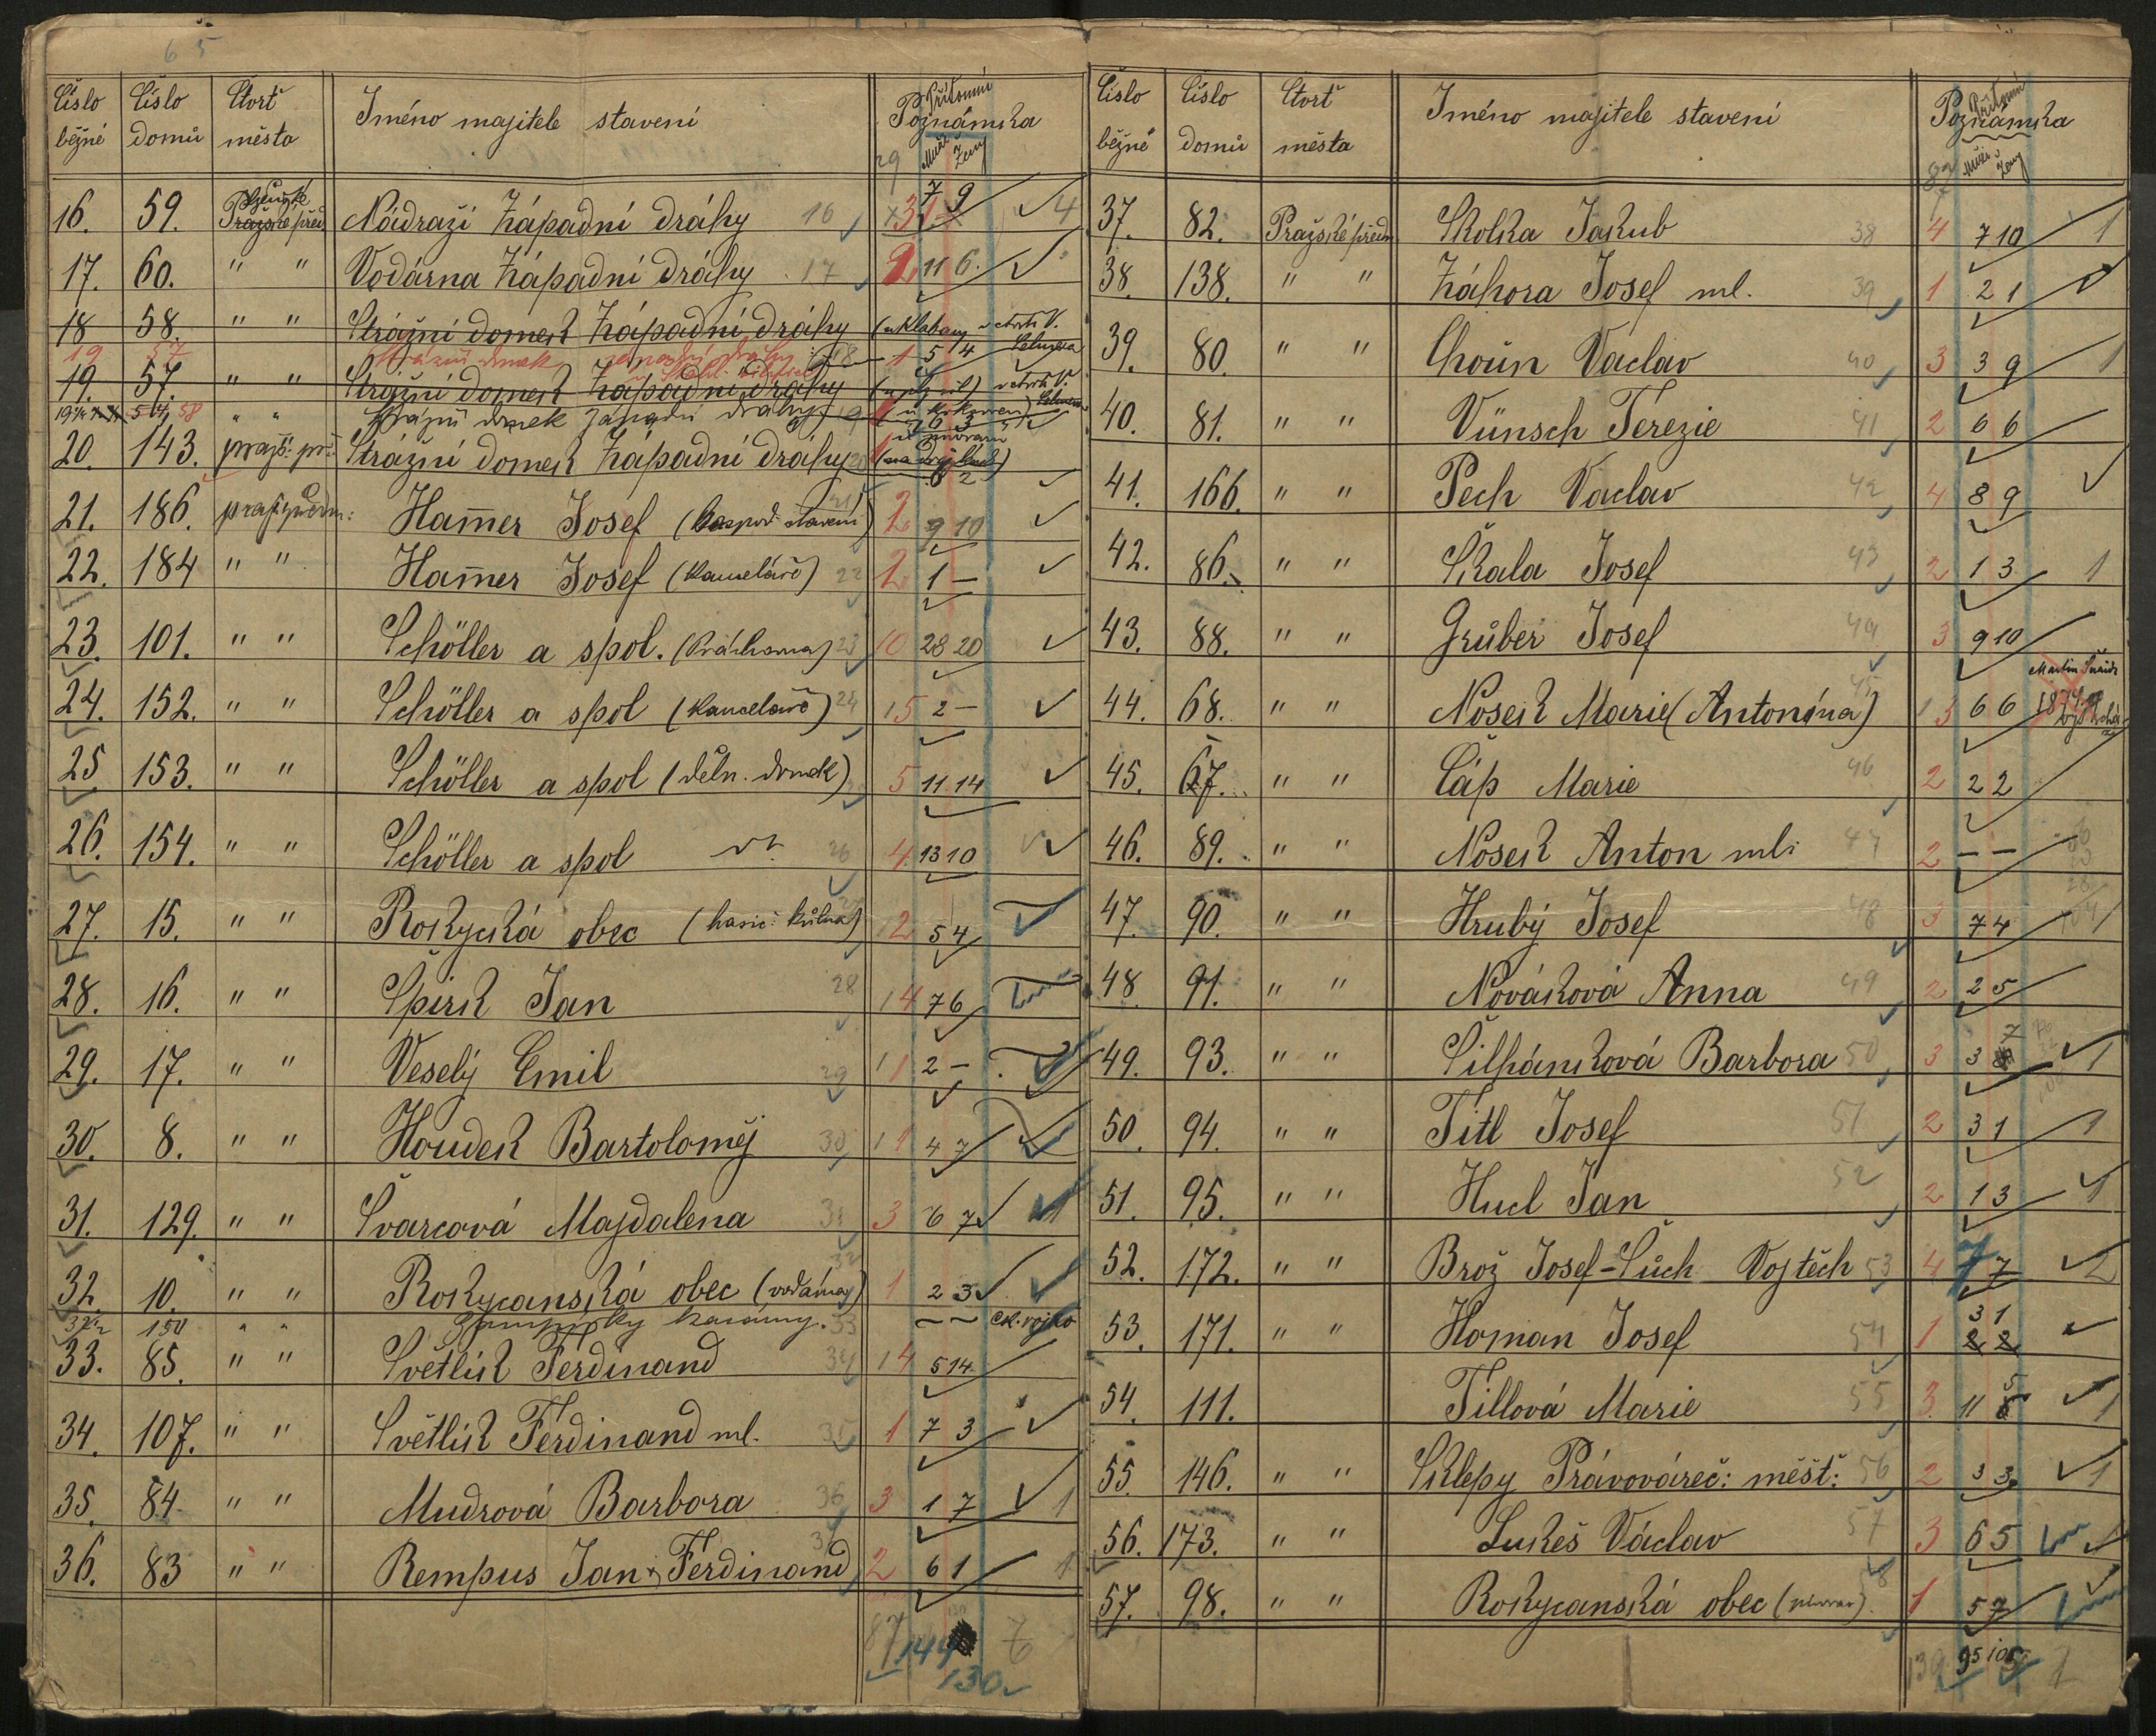 65
Číslo běžné Číslo domů Čtvrť města Jméno majitele stavení Poznámka Přítomní Muži Ženy
29
16. 59. Plzeňské Pražské před. Nádraží Západní dráhy 16 3 7 9 4
17. 60. " " Vodárna Západní dráhy 17 2 11 6.
18 58. " " Strážní domek Západní dráhy (u Klabavy v čtvrti V.
19 57 Strážní domek západní dráhy 18 1 5 4
19. 57. " " Strážní domek Západní dráhy v čtvrti V.
58 " " Strážní domek západní dráhy 19 6 3
20. 143. praž: př: Strážní domek Západní dráhy 20 1 8 2
21. 186. praž. předm: Ham̄er Josef (hospod. stavení) 21 2 9 10
22. 184 " " Ham̄er Josef (kancelář) 22 2 1 –
23. 101. " " Schöller a spol. (Práchovna) 23 10 28 20
24. 152. " " Schöller a spol (kancelář) 24 15 2 –
25 153. " " Schöller a spol (děln. domek) 5 11 14
26. 154. " " Schöller a spol 26 4 13 10
27. 15. " " Rokycká obec (hasič: kůlna) 12 5 4
28. 16. " " Špirk Jan 28 14 7 6
29. 17. " " Veselý Emil 29 11 2 –
30. 8. " " Houdek Bartoloměj 30 11 4 7
31. 129. " " Švarcová Majdalena 31 3 6 7 1
32. 10. " " Rokycanská obec (vodárna) 32 1 2 3
32½ 150 " " kasárny. 33 – – c.k. vojsko
33. 85. " " Světlík Ferdinand 34 14 5 14
34. 107. " " Světlík Ferdinand ml. 35 1 7 3
35. 84. " " Mudrová Barbora 36 3 1 7 1
36. 83 " " Rempus Jan & Ferdinand 37 2 6 1 1
87 144 7
130
Číslo běžné Číslo domů Čtvrť města Jméno majitele stavení Poznámka Přítomní Muži Ženy
87
37. 82. Pražské předm. Skolka Jakub 38 4 7 10 1
38. 138. " " Záhora Josef ml. 39 1 2 1
39. 80. " " Choun Václav 40 3 3 9 1
40. 81. " " Vünsch Terezie 41 2 6 6
41. 166. " " Pech Vaclav 42 4 8 9
42. 86. " " Skala Josef 43 2 1 3 1
43. 88. " " Grůber Josef 44 3 9 10
44. 68. " " Nosek Marie (Antonína) 45 13 6 6 Martin 1874
45. 67. " " Čáp Marie 46 2 2 2
46. 89. " " Nosek Anton ml: 47 2 – –
47. 90. " " Hrubý Josef 48 3 7 4 1
48. 91. " " Nováková Anna 49 2 2 5
49. 93. " " Šilhánková Barbora 50 3 3 7 1
50. 94. " " Titl Josef 51 2 3 1 1
51. 95. " " Hucl Jan 52 2 1 3 1
52. 172. " " Brož Josef – Sůch Vojtěch 53 4 7 7 2
53. 171. " " Homan Josef 54 1 3 1 2 2
54. 111. Tillová Marie 55 3 11 5 1
55. 146. " " Sklepy Právováreč: měšť: 56 2 3 3 1
56. 173. " " Lukeš Václav 57 3 6 5 1
57. 98. " " Rokycanská obec (pivovar) 58 1 5 7
139 95 105